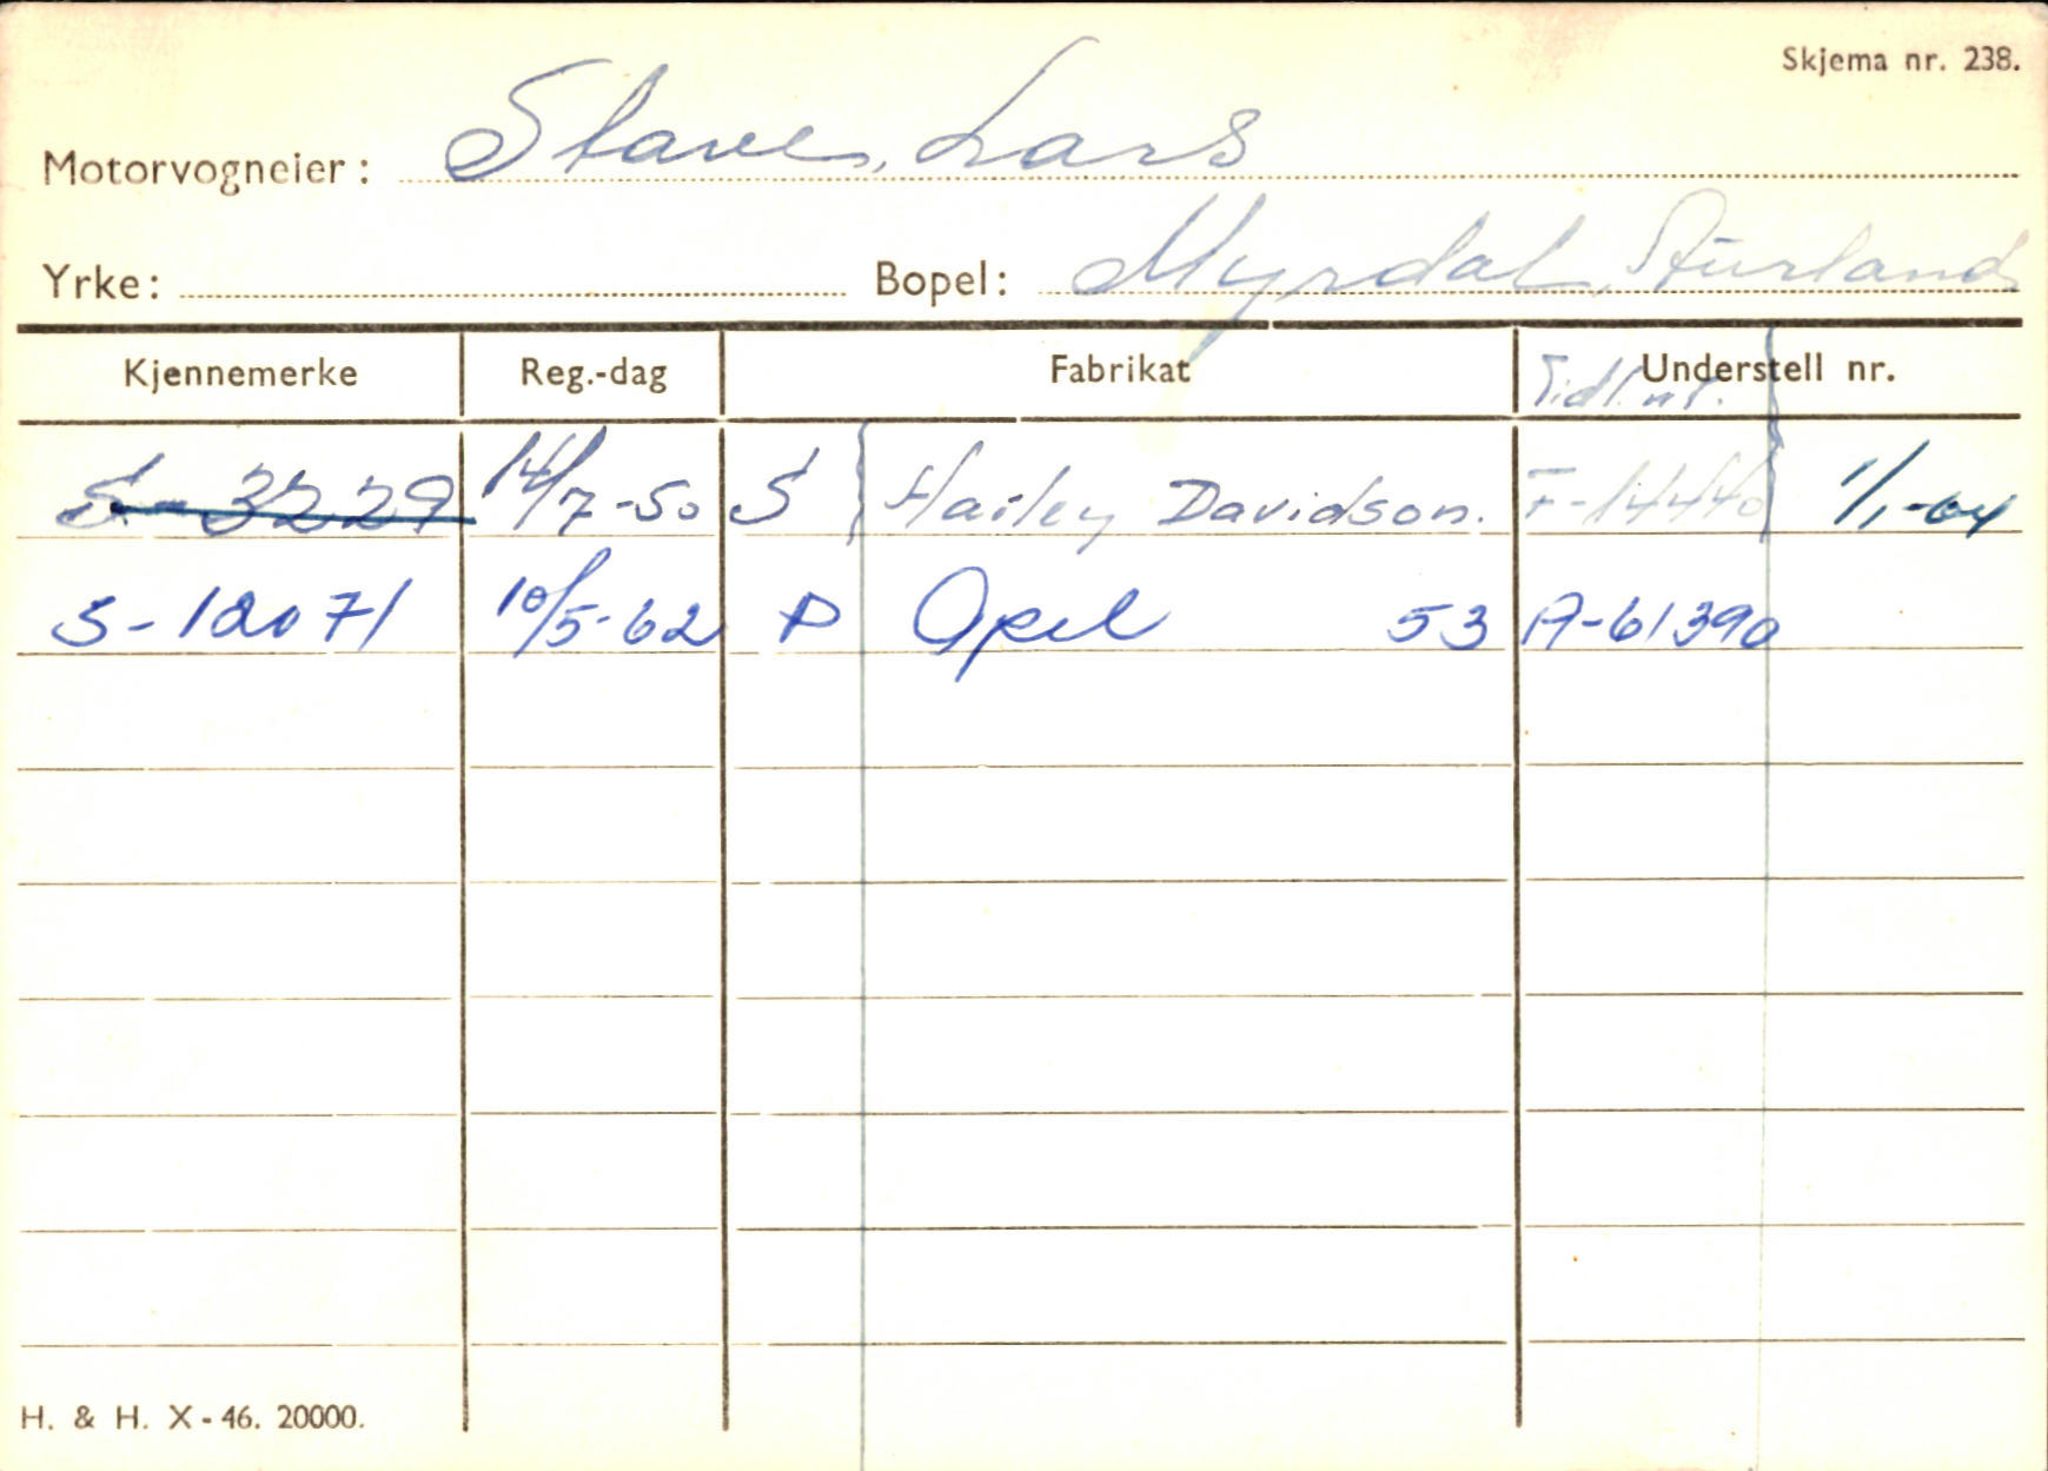 Skjema nr. 238.
Motorvogneier: Stave, Lars
Yrke: Bopel: Myrdal, Aurland
Kjennemerke Reg.-dag Fabrikat Understell nr.
Tidl. nr.
S-3229 14/7-50 S Harley Davidson. F-14440 1/1-64
S-12071 10/5-62 P Opel 53 A-61390
H. & H. X - 46. 20000.